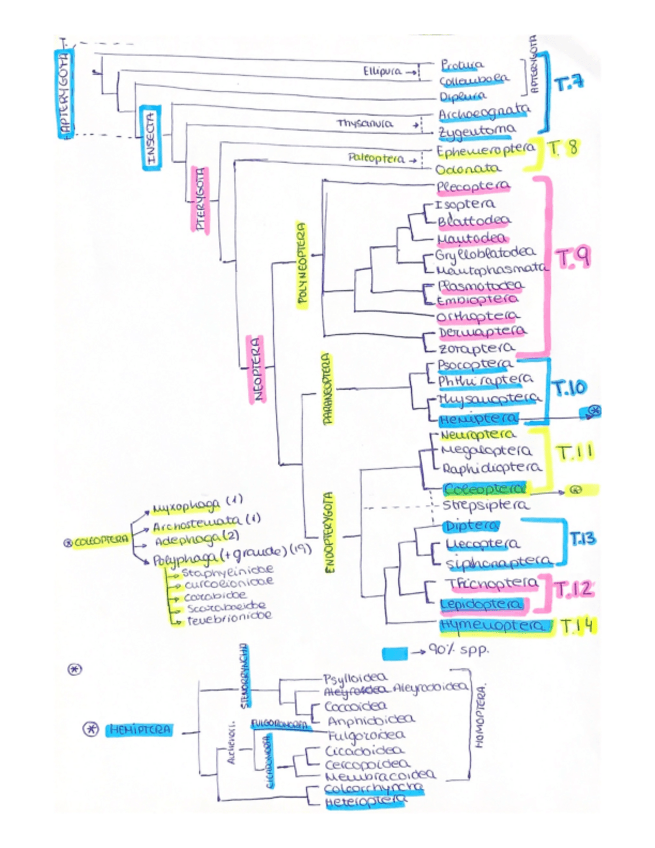 APTERYGOTA
INSECTA
PTERYGOTA
NEOPTERA
POLYNEOPTERA
PARANEOPTERA
ENDOPTERYGOTA
Ellipura →
Protura
Collembola
Diplura
APTERYGOTA
T.7
Thysanura →
Archaeognata
Zygentoma
Paleoptera →
Ephemeroptera
Odonata
T. 8
Plecoptera
Isoptera
Blattodea
Mantodea
Grylloblatodea
Mantophasmata
Plasmotodea
Embioptera
Orthoptera
Dermaptera
Zoraptera
T.9
Psocoptera
Phthiraptera
Thysanoptera
Hemiptera
T.10
Neuroptera
Megaloptera
Raphidioptera
Coleoptera
T.11
Strepsiptera
Diptera
Mecoptera
Siphonaptera
T.13
Trichoptera
Lepidoptera
T.12
Hymenoptera T.14
→ 90% spp.
* COLEOPTERA
Myxophaga (1)
Archostemata (1)
Adephaga (2)
Polyphaga (+ grande) (19)
Staphylinidae
Curculionidae
Carabidae
Scarabaeidae
Tenebrionidae
* HEMIPTERA
STENORRYNCHA
Psylloidea
Aleyrodoidea
Coccoidea
Amphidoidea
FULGOROMORFA
Fulgoroidea
CICADOMORFA
Cicadoidea
Cercopoidea
Membracoidea
Coleorrhyncha
Heteroptera
HOMOPTERA.